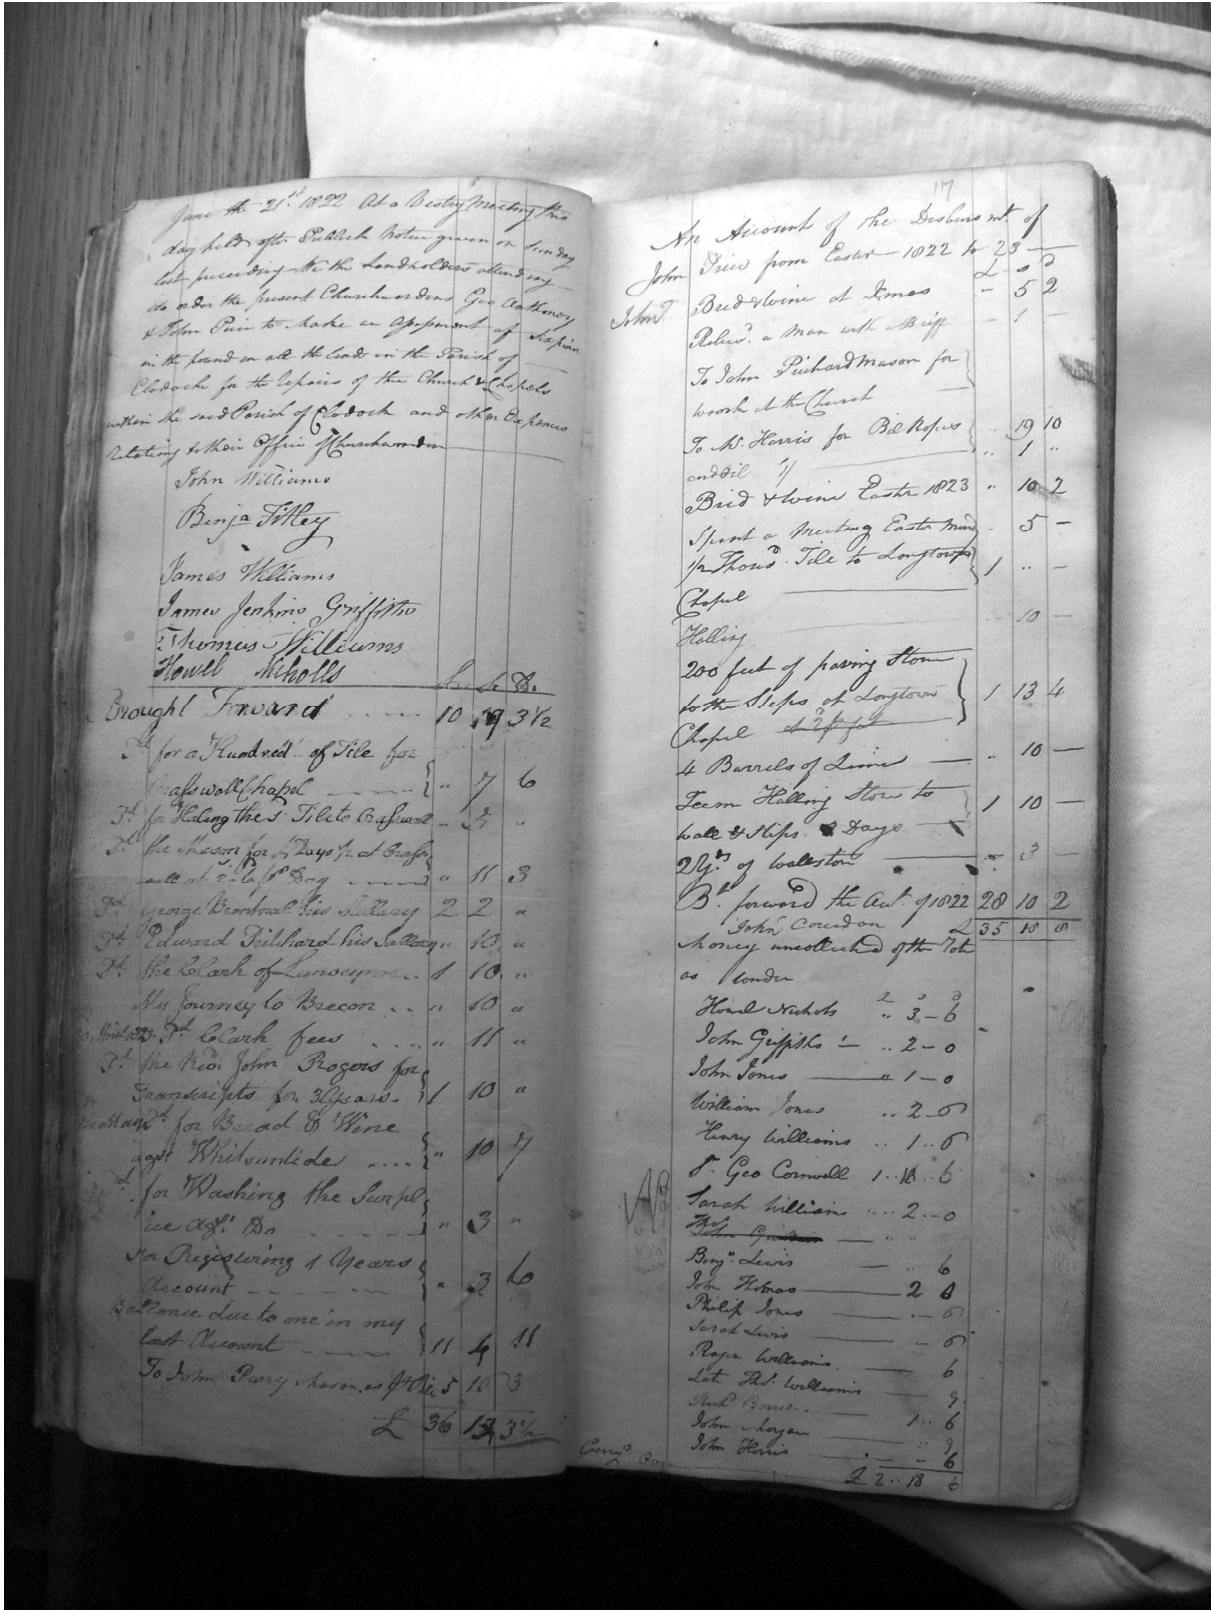 June the 21st. 1822 At a Vestry Meeting this
day held after Publick Notice given on Sunday
last preceeding We the Landholders attending
do order the present Churchwardens Geo Anthoney
& John Price to make an of Sixpence
in the pound on all the lands in the Parish of
Clodock for the repairs of the Church & Chapels
within the said Parish of Clodock and other Expences
relating to their Office of Churchwarden
John Williams
Benja Filley
James Williams
James Jenkins Griffiths
Thomas Williams
Howel Nicholls
Brought Forward 10 19 3 1/2
Pd for a Hundred of Tile for
Crasswall Chapel " 7 6
Pd for Haling thes Tile to Crasswall " 5 "
Pd the Mason for Days at Crass
wall at Day " 11 3
Pd George his Sallary 2 2 "
Pd Edward Prichard his Sallary " 10 "
Pd the Clark of 1 10 "
My Journey to Brecon " 10 "
April 1823 Pd Clark fees " 11 "
Pd the Revd John Rogers for
Transcripts for 3 years 1 10 "
May Pd for Bread & Wine
agst Whitsuntide " 10 7
Pd for Washing the Surpl
ice agst Do " 3 "
For Registering 1 Years
Account " 3 6
Ballance due to me in my
last Account 11 4 11
To John Parry Mason as 5 10 3
£ 36 13 3 1/2
117
An Account of the Disbursmt. of
John Price from Easter 1822 to 23
£ s d
Bred & wine at Xmas " 5 2
Reliev'd a Man with a Briff - 1 -
To John Prichard Mason for
work at the Church
To Mr. Harris for Bell Ropes " 19 10
and oil 1/ " 1 "
Bred & wine Easter 1823 " 10 2
Spent a Meeting Easter Mund - 5 -
1/2 Thousd. Tile to Longtown 1 " -
Chapel
Halling 10 -
200 feet of paving Stone
to the Steps at Longtown 1 13 4
Chapel
4 Barrels of Lime " 10 -
Teem Halling Stone to 1 10 -
wall & Steps 2 Days
2 Yds of wallston - 3 -
Bt. forword the Act. of 1822 28 10 2
£ 35 18 8
Money uncollected of the Lote
as under
£ s d
Howel Nichols " 3 - 6
John Griffiths " 2 - 0
John Jones " 1 - 0
William Jones " 2 - 6
Henry Williams " 1 " 6
Geo Cornwell 1 " 18 " 6
Sarah Williams " 2 - 0
Benjn Lewis 6
John Holmes 2 6
Philip Jones - 6
Sarah Lewis - 6
Roger Williams 6
Late Thos. Williams 9
1 " 6
John Morgan " 9
John Harris " 6
£ 2 " 18 6